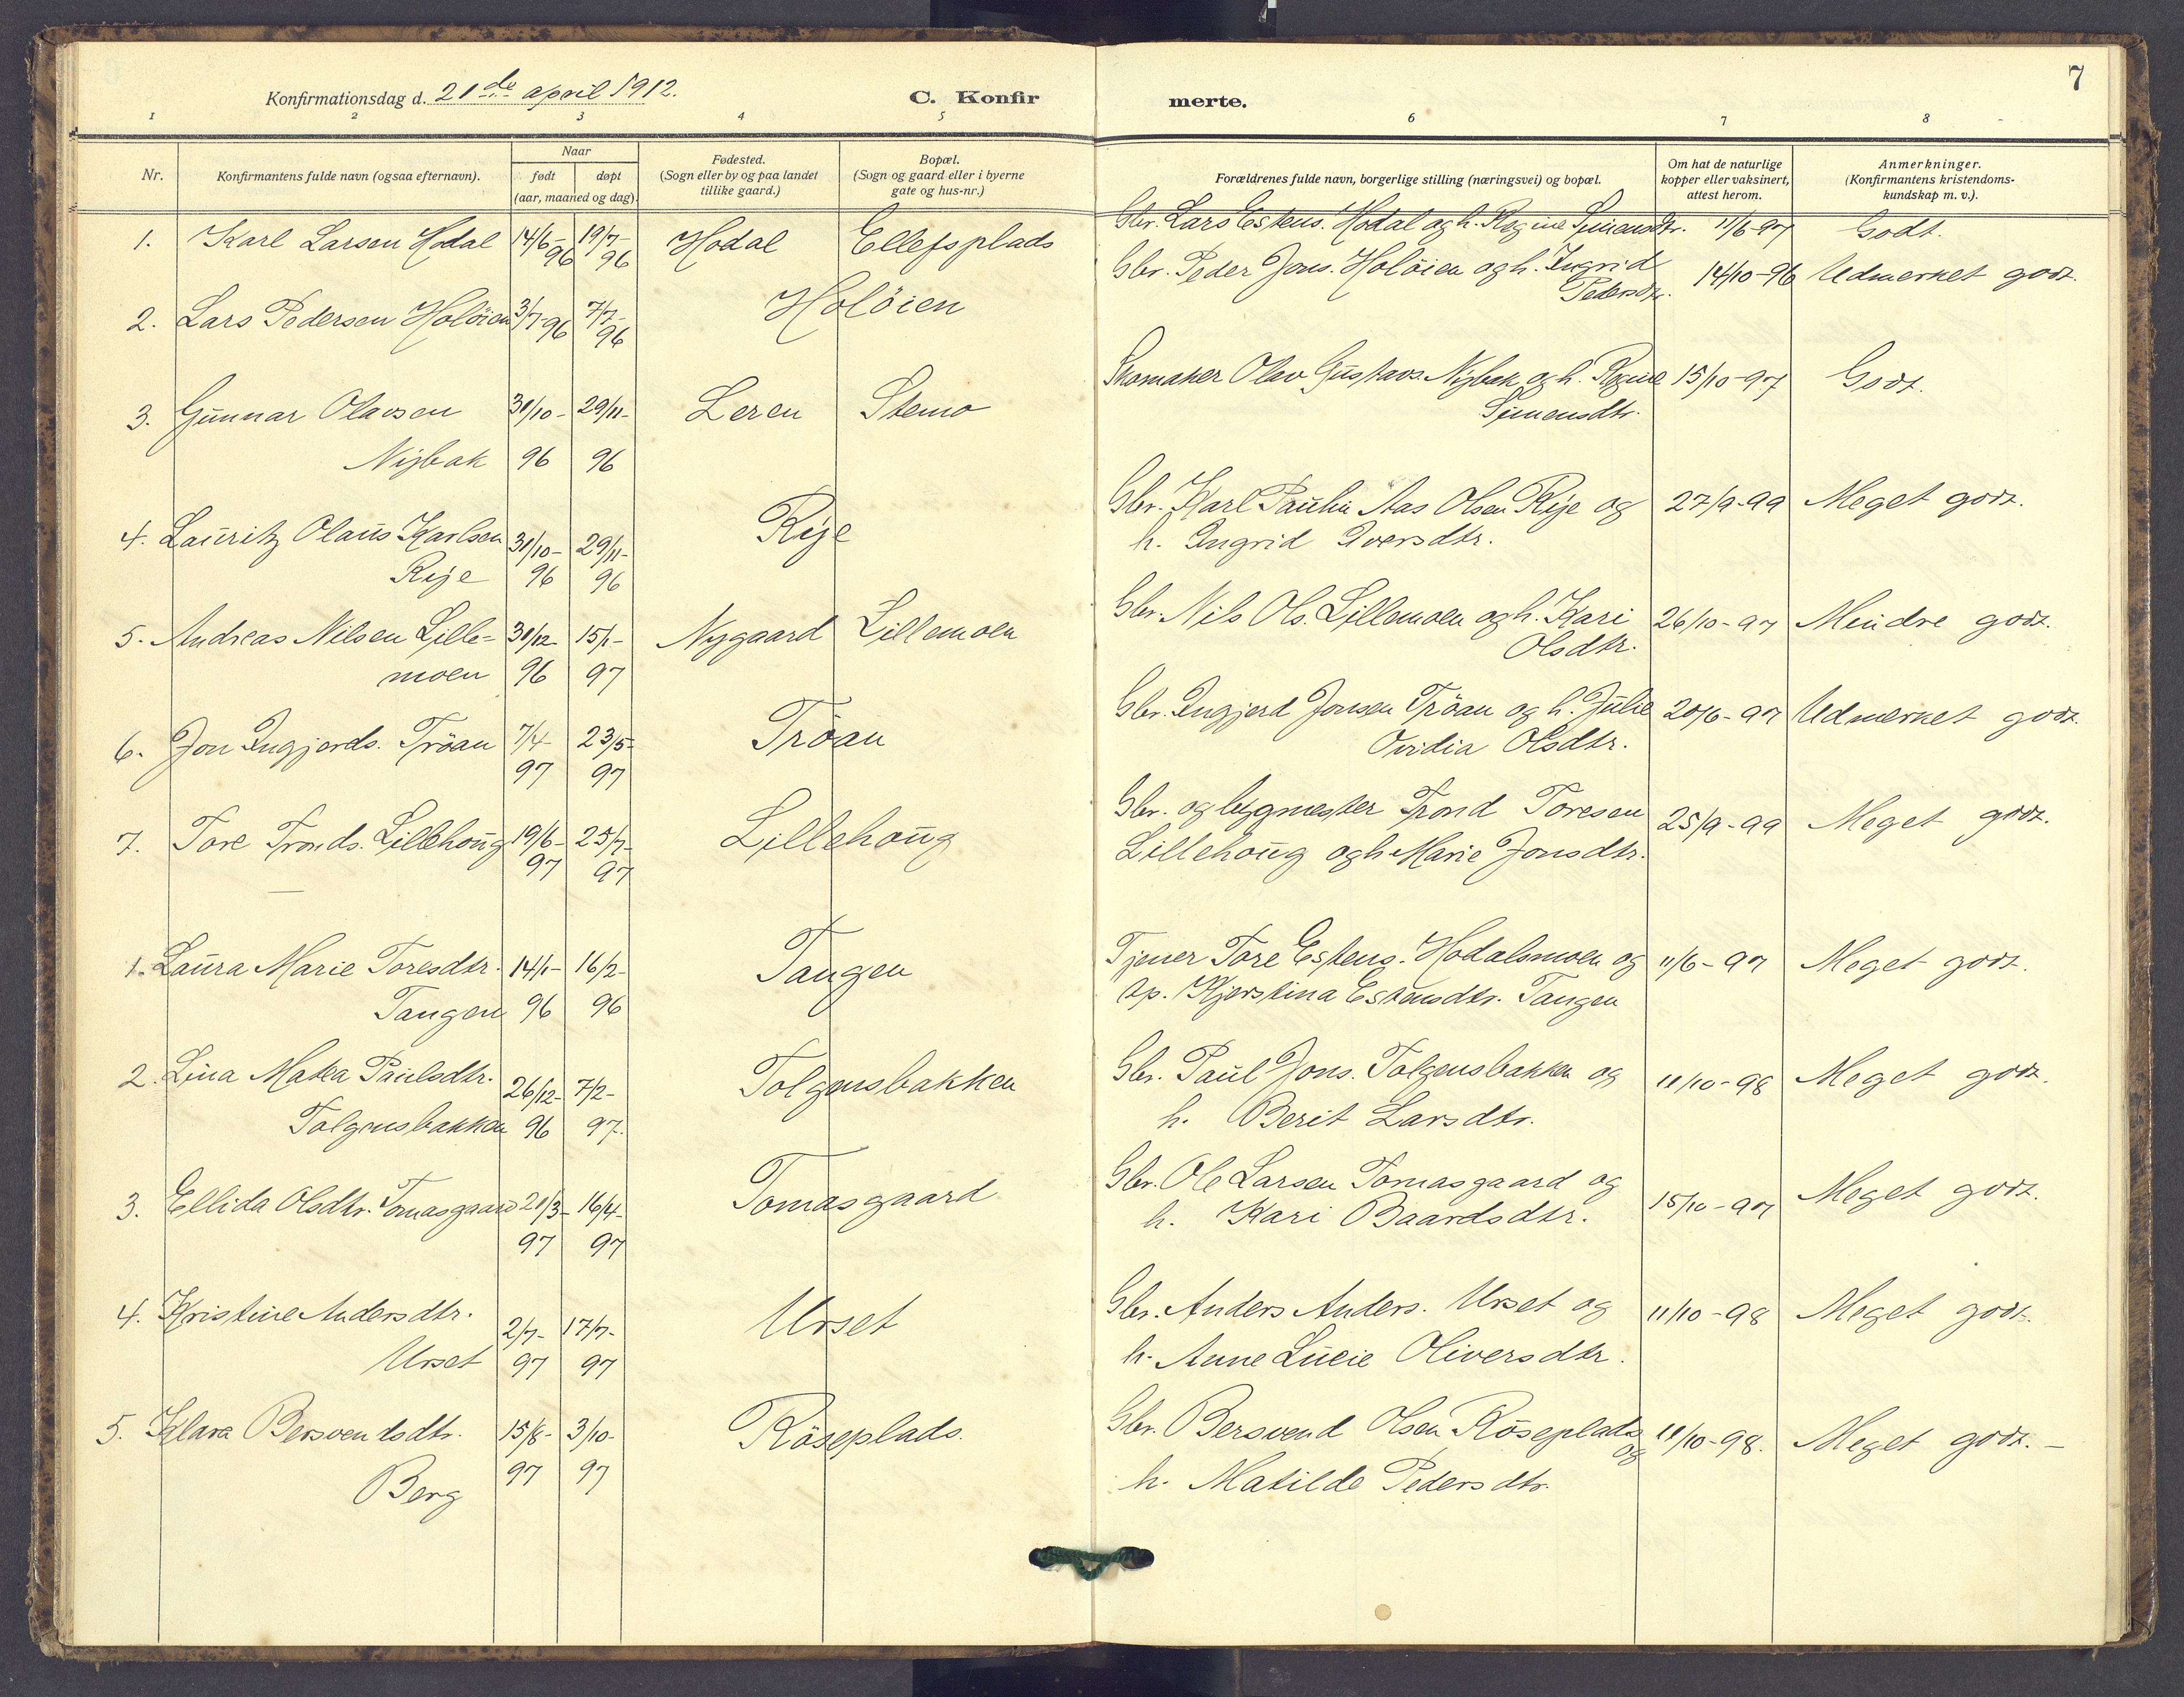 Konfirmationsdag d. 21de april 1912. C. Konfir merte. 7
1 2 3 4 5 6 7 8
Nr. Konfirmantens fulde navn (ogsaa efternavn). Naar født døpt (aar, maaned og dag). Fødested. (Sogn eller by og paa landet tillike gaard.) Bopæl. (Sogn og gaard eller i byerne gate og hus-nr.) Forældrenes fulde navn, borgerlige stilling (næringsvei) og bopæl. Om hat de naturlige kopper eller vaksinert, attest herom. Anmerkninger. (Konfirmantens kristendoms-kundskap m. v.).
1. Karl Larsen Hodal 14/6-96 19/7-96 Hodal Ellefsplads Gbr. Lars Estens. Hodal og h. Regine Simensdtr. 11/6-97 Godt.
2. Lars Pedersen Holöien 3/7-96 7/7-96 Holöien Gbr. Peder Jons. Holöien og h. Ingrid
Pedersdtr. 14/10-96 Udmerket godt.
3. Gunnar Olavsen 31/10- 29/11- Leren Stemo Skomaker Olav Gustavs. Nijbak og h. Regine 15/10-97 Godt.
Nijbak 96 96 Simensdtr.
4. Lauritz Olaus Karlsen 31/10- 29/11- Rije Gbr. Karl Paulin Aas Olsen Rije og 27/9-99 Meget godt.
Rije 96 96 h. Ingrid Iversdtr.
5. Andreas Nilsen Lille- 31/12- 15/1- Nygaard Lillemoen Gbr. Nils Ols. Lillemoen og h. Kari 26/10-97 Mindre godt.
moen 96 97 Olsdtr.
6. Jon Ingjerds. Tröan 7/4- 23/5- Tröan Gbr. Ingjerd Jonsen Tröan og h. Julie 20/6-97 Udmerket godt.
97 97 Ovidia Olsdtr.
7. Tore Tronds. Lillehoug 19/6- 25/7- Lillehoug Gbr. og bygmester Trond Toresen 25/9-99 Meget godt.
97 97 Lillehoug og h. Marie Jonsdtr.
1. Laura Marie Toresdtr. 14/1- 16/2- Tangen Tjener Tore Estens. Hodalsmoen og 11/6-97 Meget godt.
Tangen 96 96 Kjerstina Estensdtr. Tangen
2. Lina Matea Paulsdtr. 26/12- 7/2- Tolgensbakken Gbr. Paul Jons. Tolgensbakken og 11/10-98 Meget godt.
Tolgensbakken 96 97. h. Berit Larsdtr.
3. Ellida Olsdtr. Tomasgaard 21/3- 16/4- Tomasgaard Gbr. Ole Larsen Tomasgaard og 15/10-97 Meget godt.
97 97 h. Kari Baardsdtr.
4. Kristine Andersdtr. 2/7- 17/7- Urset Gbr. Anders Anders. Urset og 11/10-98 Meget godt.
Urset 97 97 h. Anne Lucie Oliversdtr.
5. Klara Bersvendsdtr. 15/8- 3/10- Röseplads. Gbr. Bersvend Olsen Röseplads og 11/10-98. Meget godt.-
Berg 97 97 h. Matilde Pedersdtr.